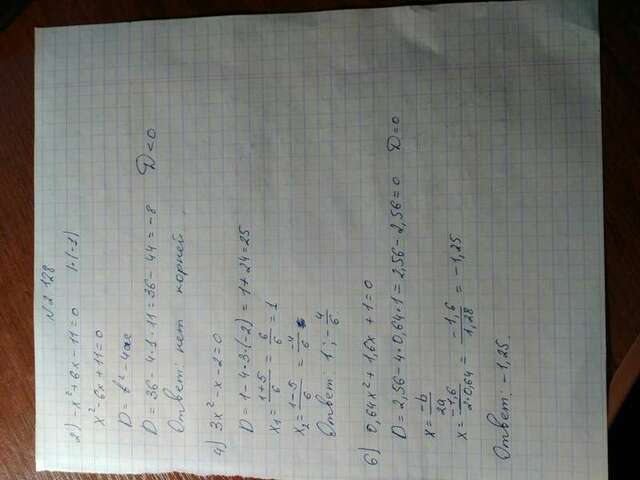 № 2 128
2) -x²+6x-11=0 |·(-1)
x²-6x+11=0
D = b²-4ac
D = 36-4·1·11=36-44=-8 D<0
Ответ: нет корней.
4) 3x²-x-2=0
D = 1-4·3·(-2)=1+24=25
x₁ = (1+5)/6 = 6/6 = 1
x₂ = (1-5)/6 = -4/6
Ответ: 1; -4/6
6) 0,64x²+1,6x+1=0
D = 2,56-4·0,64·1=2,56-2,56=0 D=0
x = -b/2a
x = -1,6/2·0,64 = -1,6/1,28 = -1,25
Ответ: -1,25